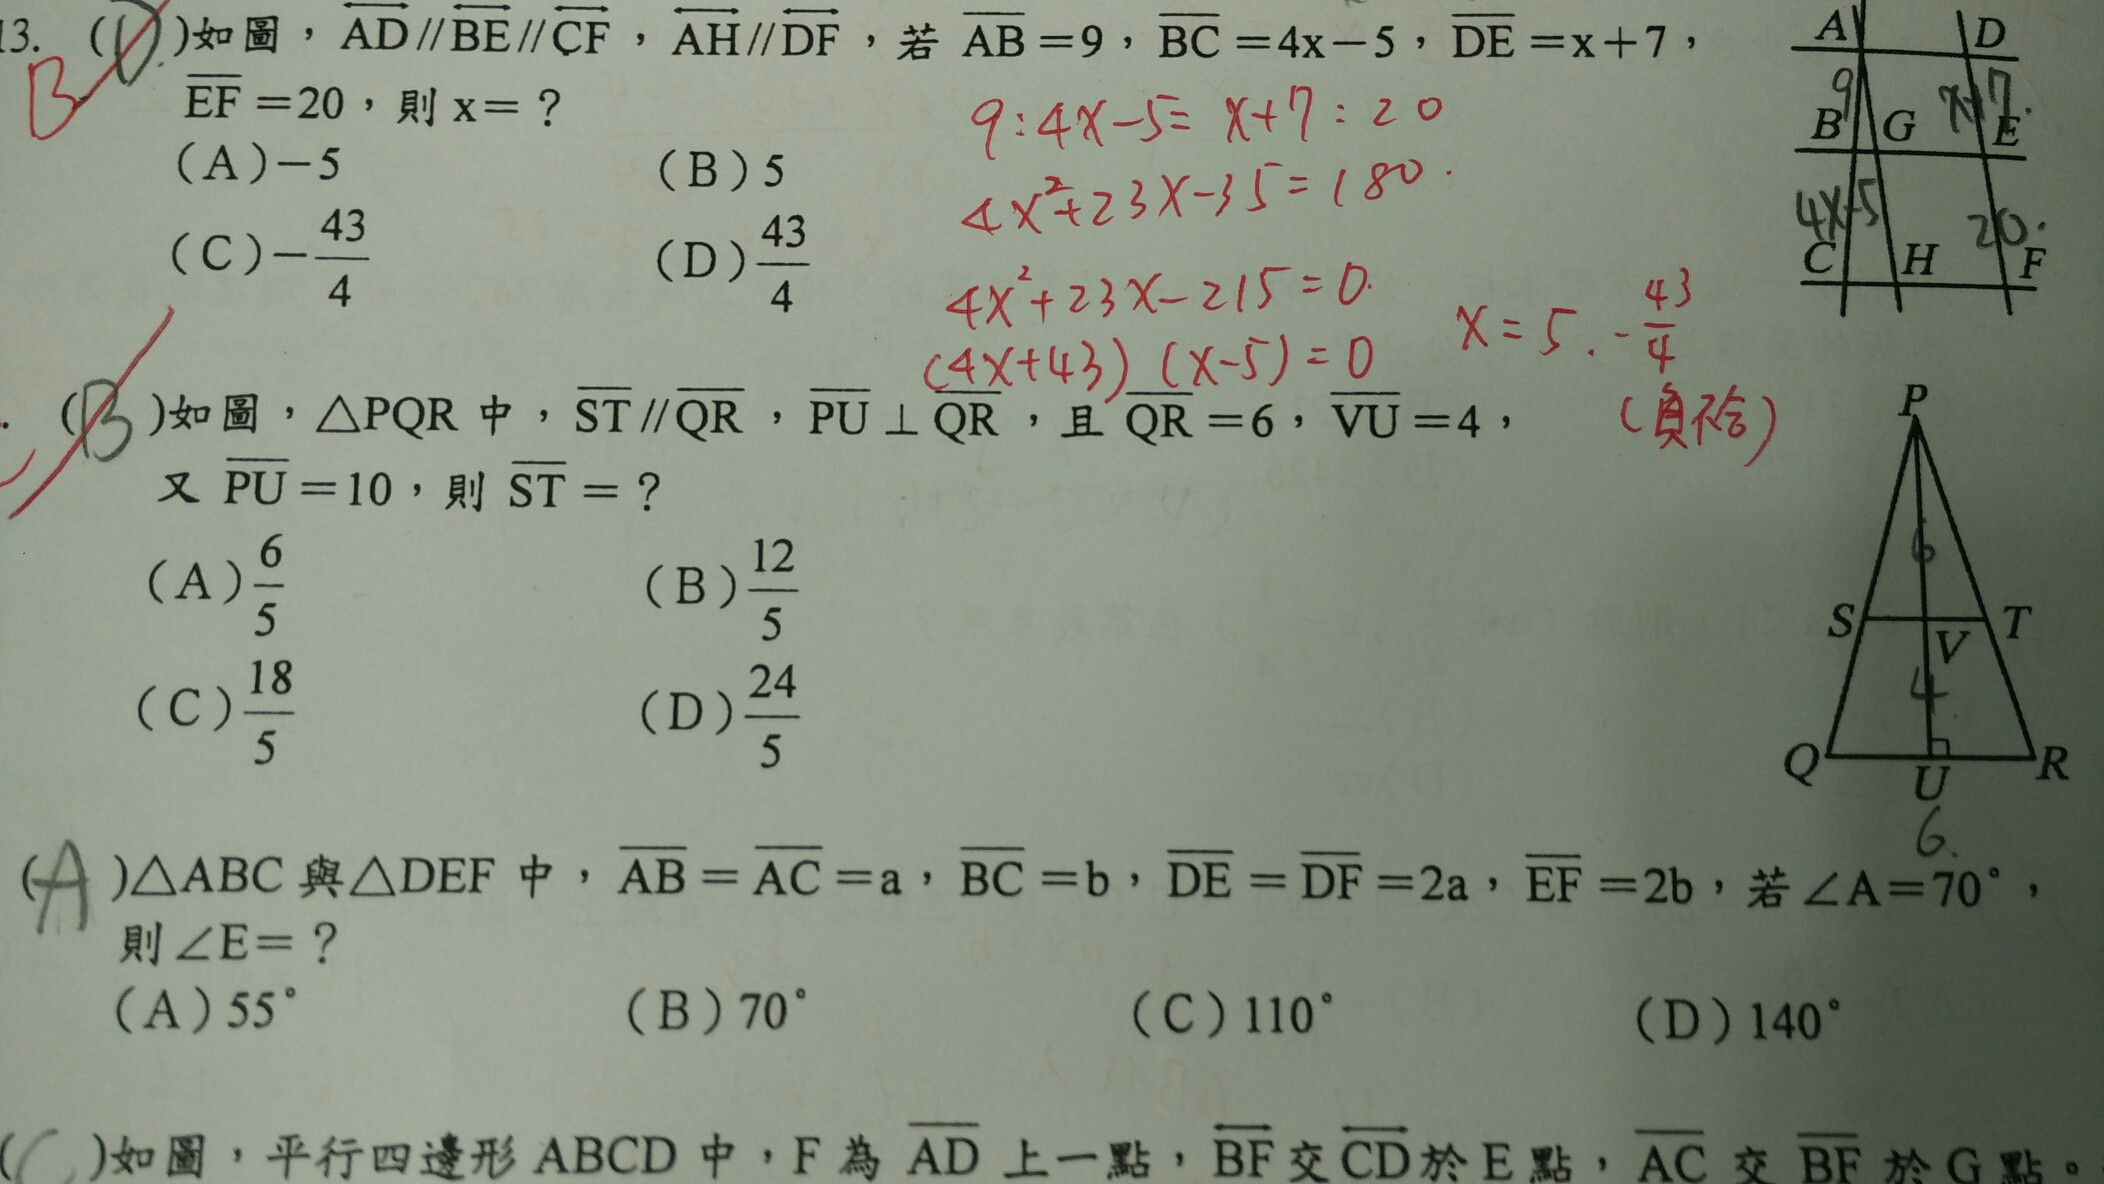 13. (D)如圖，AD//BE//CF，AH//DF，若 AB=9，BC=4x−5，DE=x+7，
B
EF=20，則 x=？
(A)−5
(B)5
(C)−43/4
(D)43/4
9:4x−5=x+7:20
4x²+23x−35=180.
4x²+23x−215=0.
(4x+43)(x−5)=0
x=5.−43/4
(負不合)
A
D
9
x+7.
B
G
E
4x−5
20.
C
H
F
. (B)如圖，△PQR 中，ST//QR，PU⊥QR，且 QR=6，VU=4，
又 PU=10，則 ST=？
(A)6/5
(B)12/5
(C)18/5
(D)24/5
P
6
S
V
T
4
Q
U
R
6.
(A)△ABC 與△DEF 中，AB=AC=a，BC=b，DE=DF=2a，EF=2b，若∠A=70°，
則∠E=？
(A)55°
(B)70°
(C)110°
(D)140°
(C)如圖，平行四邊形 ABCD 中，F 為 AD 上一點，BF交CD於 E 點，AC 交 BF 於 G 點。